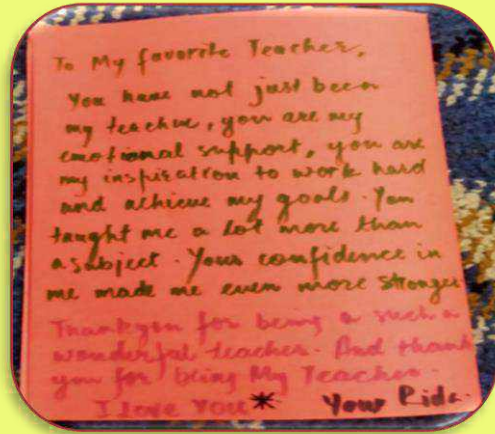 To My favorite Teacher,
You have not just been
my teacher, you are my
emotional support, you are
my inspiration to work hard
and achieve my goals. You
taught me a lot more than
a subject. Your confidence in
me made me even more stronger
Thankyou for being a such a
wonderful teacher. And thank
you for being My Teacher.
I love You* Your Rida.